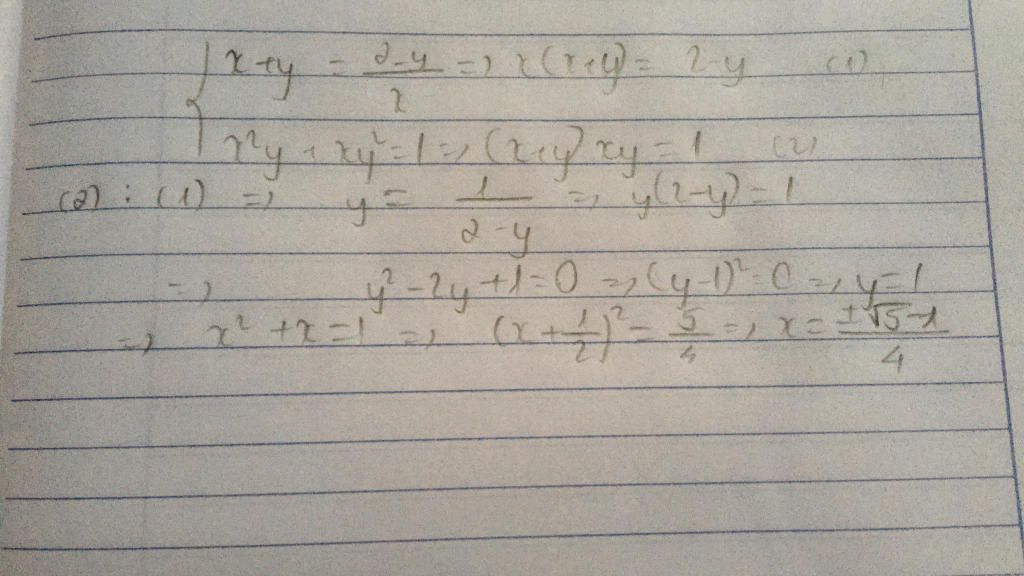 { x+y = (2-y)/x => x(x+y) = 2-y (1)
x²y + xy² = 1 => (x+y) xy = 1 (2)
(2) : (1) => y = 1/(2-y) => y(2-y) = 1
=> y² - 2y + 1 = 0 => (y-1)² = 0 => y = 1
=> x² + x = 1 => (x + 1/2)² = 5/4 => x = (±√5 - 1)/4